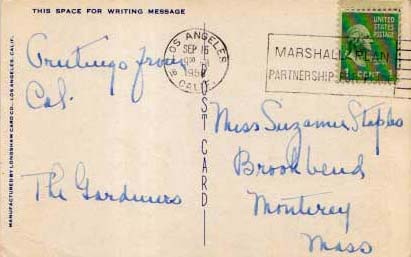 THIS SPACE FOR WRITING MESSAGE
Greetings from
Cal.
The Gardiners
MANUFACTURED BY LONGSHAW CARD CO.—LOS ANGELES, CALIF.
POST CARD
LOS ANGELES
SEP 16
CALIF.
MARSHALL PLAN
PARTNERSHIP
UNITED
STATES
POSTAGE
1 CENT 1
Miss Suzanne Staples
Brookbend
Monterey
Mass